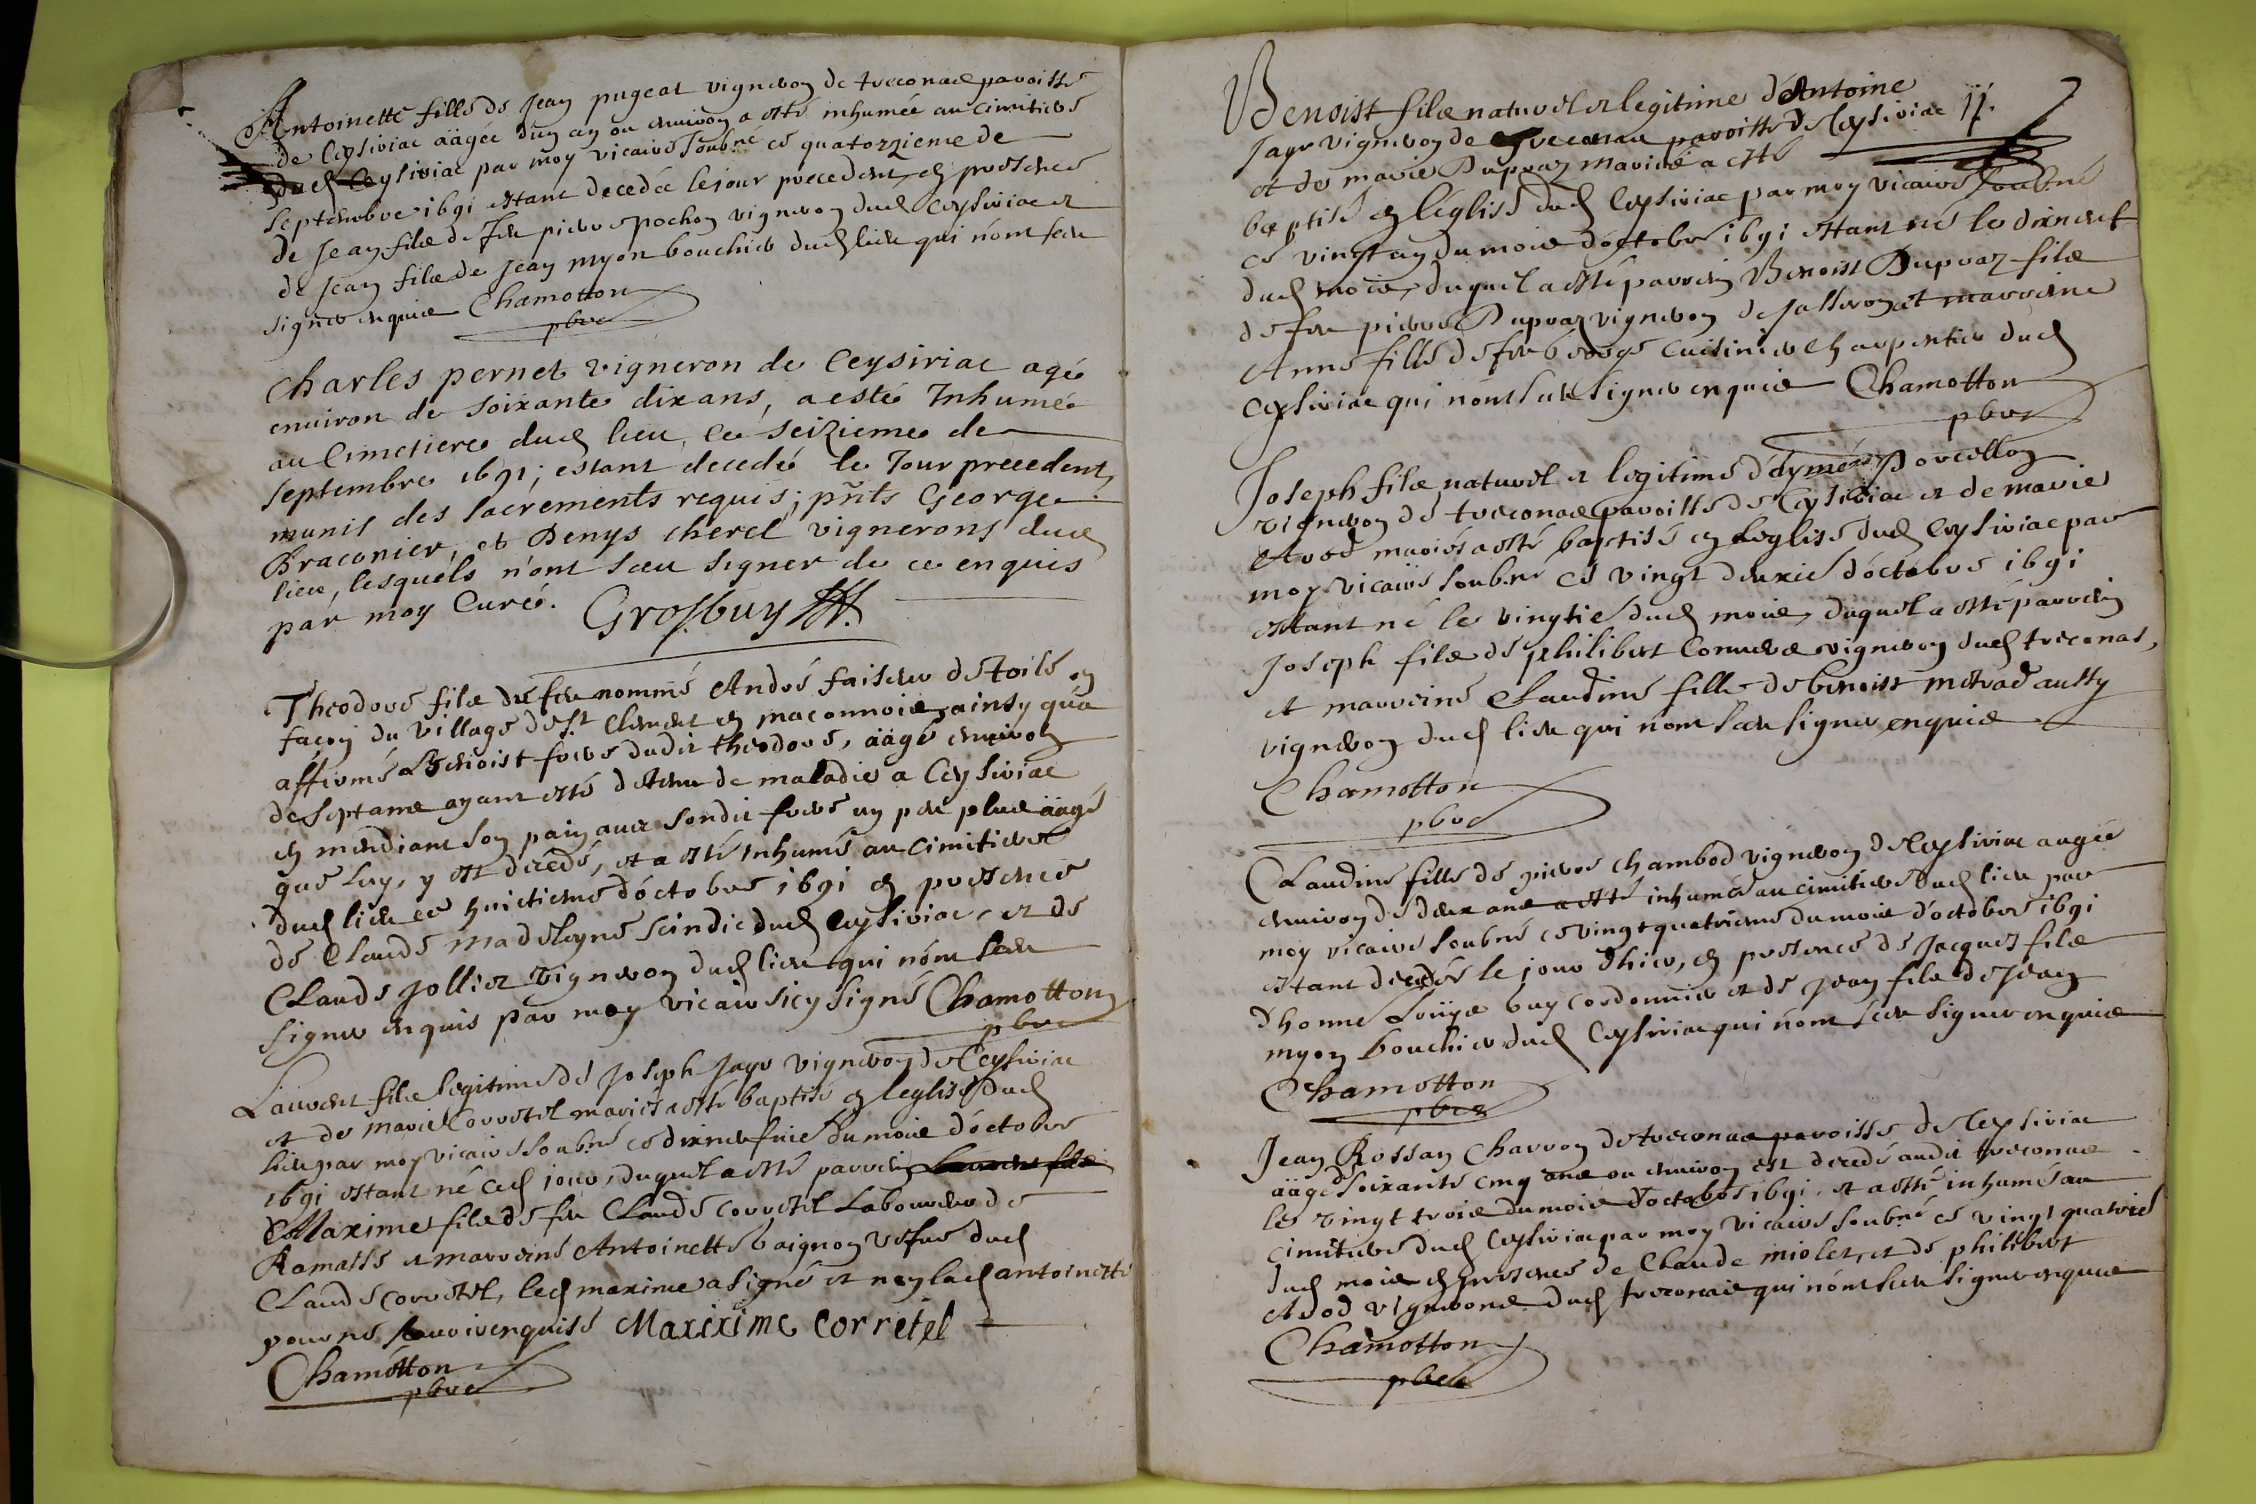 Antoinette fille de Jean pugeat vigneron de treconas paroisse
de Ceysiriac aagée d'un an ou environ a esté inhumée au cimitiere
dud Ceysiriac par moy vicaire soubné ce quatorzieme de
septembre 1691 estant decedée le jour precedent, en presence
de Jean fils de feu pierre pochon vigneron dud Ceysiriac et
de Jean fils de Jean myon bouchier dud lieu qui n'ont sceu
signer enquis Chamotton
pbre
Charles pernet vigneron de Ceysiriac agé
environ de soixante dix ans, a esté Inhumé
au Cimetiere dud lieu, le seizieme de
septembre 1691; estant decedé le Jour precedent,
munis des sacrements requis; pñts George
Braconier, et Denys cherel vignerons dud
lieu, lesquels n'ont sceu signer de ce enquis
par moy Curé. Grosbuy
Theodore fils de feu nommé André faiseur de toile en
façon du village de St Clement en maconnois, ainsy qu'a
affirmé Benoist frere dudit theodore, aagé environ
de sept ans ayant esté detenu de maladie a Ceysiriac
en mendiant son pain avec sondit frere un peu plus aagé
que luy, y est decedé, et a esté inhumé au Cimitiere
dud lieu ce huictieme d'octobre 1691 en presence
de Claude Madeleyne scindic dud Ceysiriac, et de
Claude Jollier vigneron dud lieu qui n'ont sceu
signer enquis par moy vicaire icy signé Chamotton
pbre
Laurent fils legitime de Joseph Jayr vigneron de Ceysiriac
et de Marie Corretel mariés a esté baptisé en l'eglise dud
lieu par moy vicaire soubné ce dixneufuie du mois d'octobre
1691 estant né ced jour, duquel a esté parrein Laurent fils
Maxime fils de feu Claude Corretel Laboureur de
Ramasse et marreine Antoinette baignon vefue dud
Claude corretel, led maxime a signé et non lad antoinette
pour ne sçavoir enquise Maxixime Corretel
Chamotton
pbre
Benoist fils naturel et legitime d'Antoine
Jayr vigneron de treconas paroisse de Ceysiriac 11.
et de marie Dupraz mariés a esté
baptisé en l'église dud Ceysiriac par moy vicaire soubné
ce vingt un du mois d'octobre 1691 estant né le dixneuf
dud mois, duquel a esté parrein Benoist Dupraz fils
de feu pierre Dupraz vigneron de Jasseron et marreine
Anne fille de feu George Cuisinier charpentier dud
Ceysiriac qui n'ont sceu signer enquis Chamotton
pbre
Joseph fils naturel et legitime d'Aymé Porcellon
vigneron de treconas paroisse de Ceysiriac et de marie
mariés a esté baptisé en l'eglise dud Ceysiriac par
moy vicaire soubné ce vingt deuxie d'octobre 1691
estant né le vingtie dud mois, duquel a esté parrein
Joseph fils de philibert Convers vigneron dud treconas,
et marreine Claudine fille de benoist metrad aussy
vigneron dud lieu qui n'ont sceu signer enquis
Chamotton
pbre
Claudine fille de pierre chambod vigneron de Ceysiriac aagée
environ de deux ans a esté inhumée au cimitiere dud lieu par
moy vicaire soubné ce vingt quatrieme du mois d'octobre 1691
estant decedée le jour d'hier, en presence de Jacques fils
d'honne Louys buy cordonnier et de Jean fils de Jean
myon bouchier dud Ceysiriac qui n'ont sceu signer enquis
Chamotton
pbre
Jean Rossan Charron de treconas paroisse de Ceysiriac
aagé de soixante cinq ans ou environ est decedé audit treconas
le vingt trois du mois d'octobre 1691, et a esté inhumé au
cimitiere dud Ceysiriac par moy vicaire soubné ce vingt quatrie
dud mois en presence de Claude miolet, et de philibert
Adod vignerons dud treconas qui n'ont sceu signer enquis
Chamotton
pbre